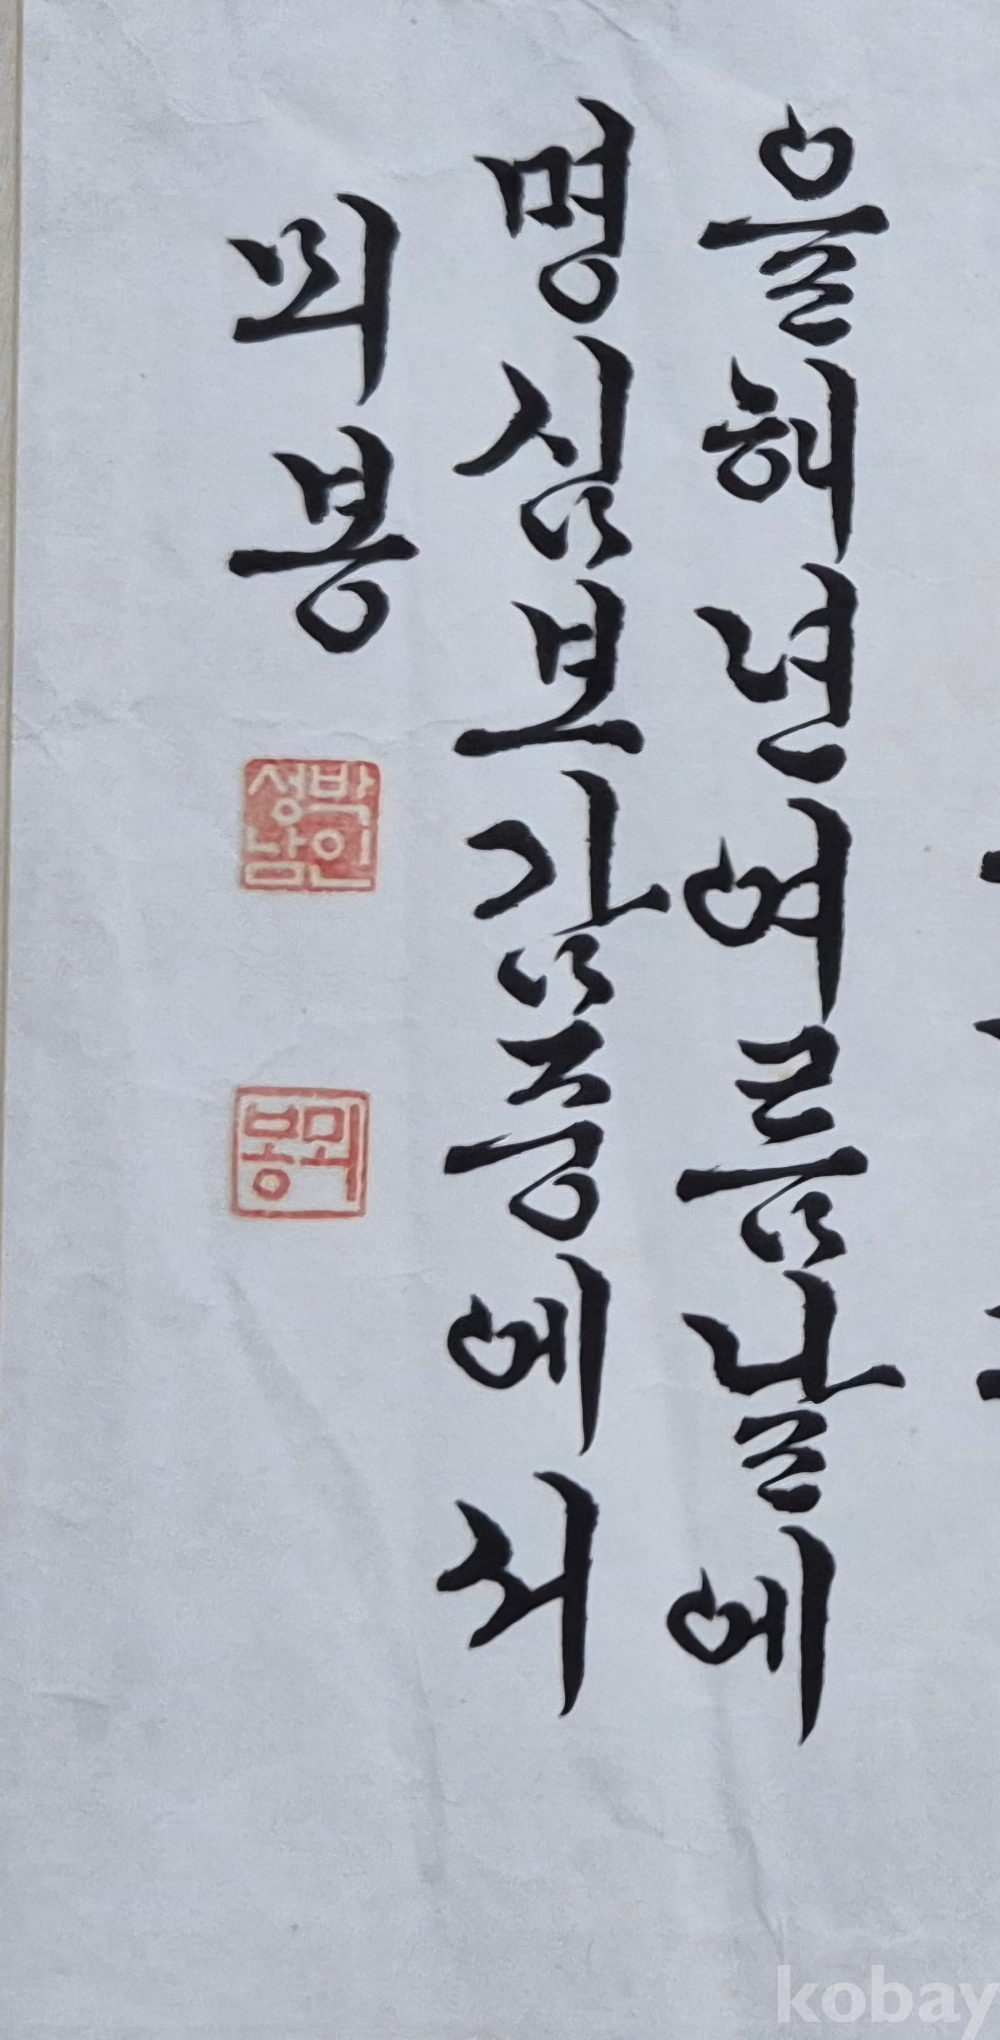 을해년여름날에
명심보감중에서
뫼봉
박인
성남
뫼
봉
kobay